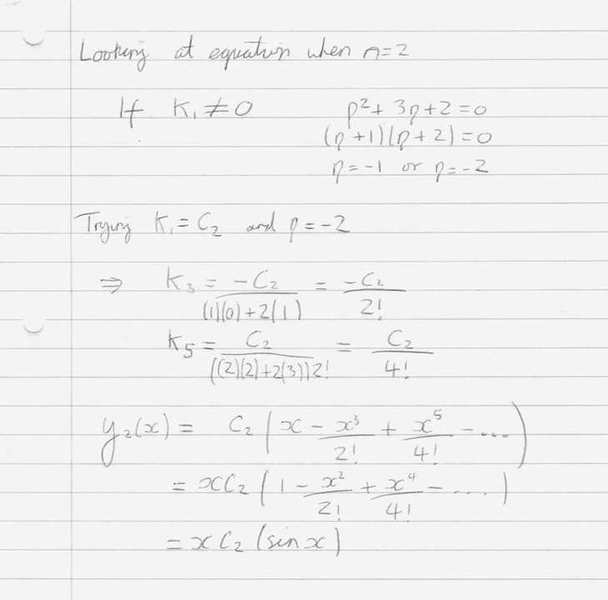 Looking at equation when n=2
If K₁ ≠ 0    p² + 3p + 2 = 0
(p+1)(p+2) = 0
p = -1 or p = -2
Trying K₁ = C₂ and p = -2
⇒ K₃ = -C₂/((1)(0)+2(1)) = -C₂/2!
K₅ = C₂/(((2)(2)+2(3))2!) = C₂/4!
y₂(x) = C₂(x - x³/2! + x⁵/4! - ....)
= xC₂(1 - x²/2! + x⁴/4! - ....)
= xC₂(sin x)